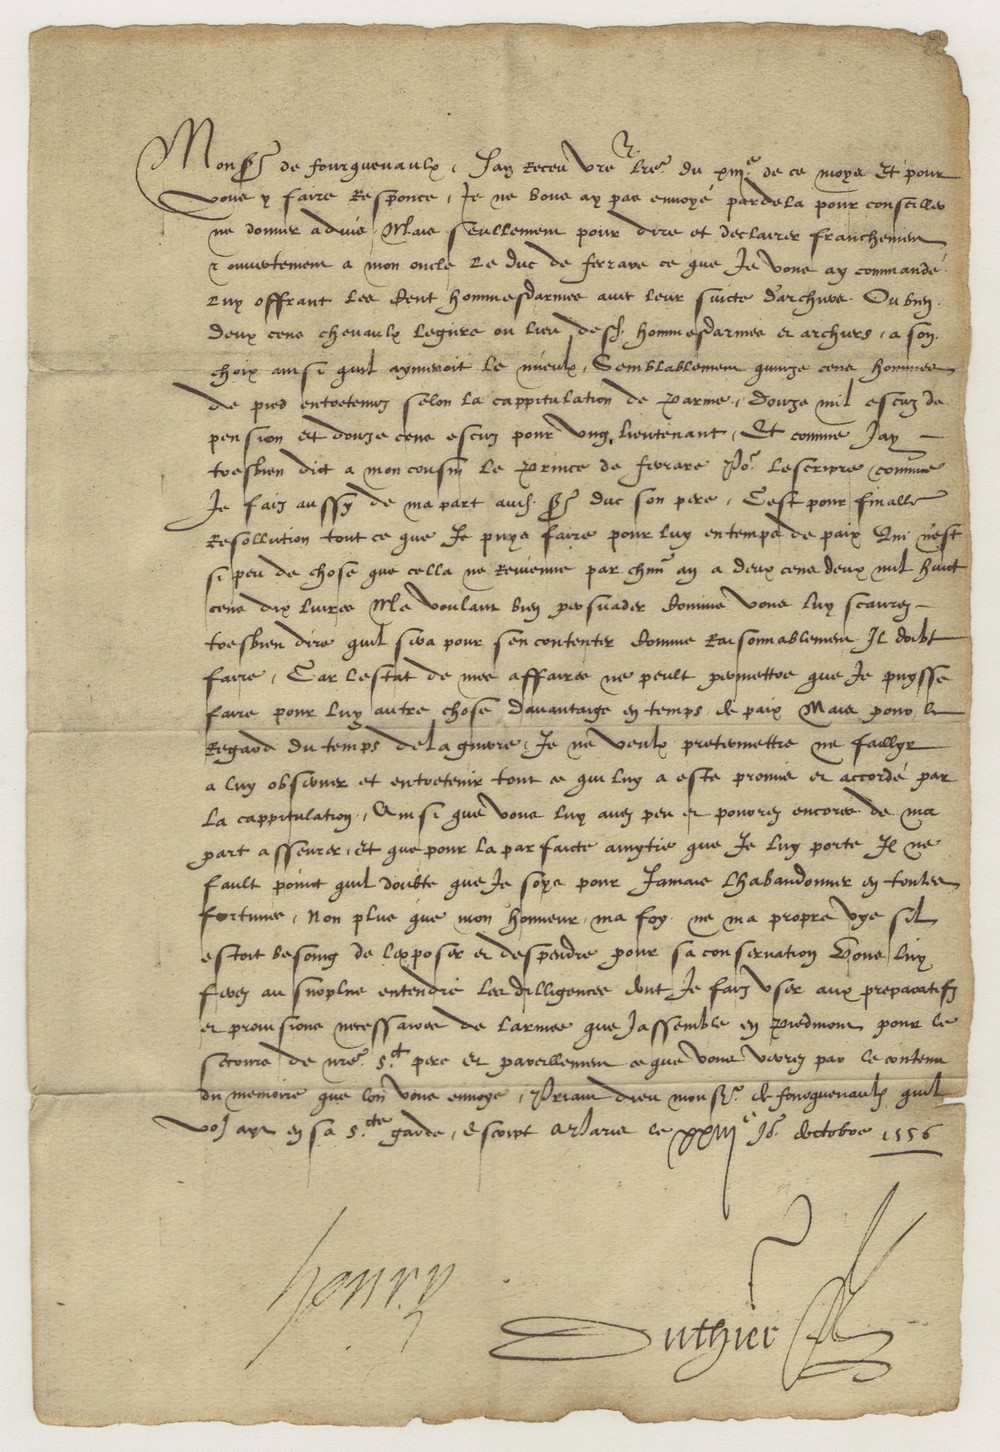 Mons.r de fourquevaulx, Jay Receu vre lre du xiiije de ce moys Et pour
vous y faire Responce, Je ne vous ay pas envoyé pardela pour conseiller
ne donner advis Mais seullement pour dire et declairer franchement
et ouvertement a mon oncle Le duc de ferrare ce que Je vous ay commandé
Luy offrant Les Cent hommesdarmes avec leur suicte darchers Ou bien
deux cens chevaulx Legiers ou lieu desd. hommesdarmes et archiers, a son
choix ainsi quil aymeroit le mieulx, Semblablement quinze cens hommes
de pied entretenuz selon la cappitulation de Parme, douze mil escuz de
pension Et douze cens escuz pour ung lieutenant, Et comme Jay
tresbien dict a mon cousin Le Prince de ferrare Po.r Lescripre comme
Je faiz aussy de ma part aud. S.r duc son pere, Cest pour finalle
Resollution tout ce que Je puys faire pour luy en temps de paix Qui nest
si peu de chose que cella ne Revienne par chun an a deux cens deux mil huict
cens dix livres Me voulant bien persuader Comme vous luy scaurez
tresbien dire quil sera pour sen contenter Comme Raisonnablement Il doibt
faire, Car Lestat de mes affaires ne peult permettre que Je puysse
faire pour luy autre chose davantaige en temps de paix Mais pour le
Regard du temps de la guerre, Je ne veulx pretermettre ne faillyr
a luy observer et entretenir tout ce qui luy a esté promis et accordé par
La cappitulation, Ainsi que vous luy avez peu et pourrez encores de ma
part asseurer, Et que pour la parfaicte amytié que Je luy porte Il ne
fault point quil doubte que Je soye pour Jamais Lhabandonner en toutes
fortunes, Non plus que mon honneur, ma foy ne ma propre vye sil
estoit besoing de lexposer et despendre pour sa conservation Vous luy
ferez au surplus entendre Les dilligences dont Je faiz user aux preparatifz
et provisions necessaires de Larmee que Jassemble en Piedmont pour le
secours de nre s.t pere Et pareillement ce que vous verrez par le contenu
du memoire que lon vous envoye, Priant dieu mons.r de fourquevaulx quil
vous ayt en sa s.cte garde, Escript a Paris le xxiije Jo.r doctobre 1556
henry
Duthier